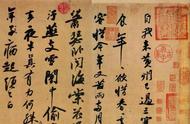 自我來黃州已過三寒
食年〻欲惜春〻去不
容惜今年又苦雨兩月秋
蕭瑟臥聞海棠花泥
汙燕支雪闇中偷
去夜半真有力何殊
年病起頭已白